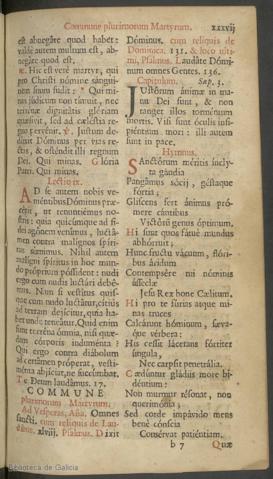 Commune plurimorum Martyrum. xxxvij
est abnegâte quod habet:
valdè autem multum est, ab-
negâte quod est.
℟. Hic est verè martyr, qui
pro Christi nómine sángui-
nem suum fudit: * Qui mi-
nas júdicum non tímuit, nec
terrénæ dignitátis glóriam
quæsívit, sed ad cæléstia re-
gna pervénit. ℣. Justum de-
dúxit Dóminus per vias re-
ctas, & osténdit illi regnum
Dei. Qui minas. Glória
Patri. Qui minas.
Lectio ix.
AD se autem nobis ve-
niéntibus Dóminus præ-
cépit, ut renuntiémus no-
stris: quia quicúmque ad fí-
dei agónem venímus, luctá-
men contra malígnos spíri-
tus súmimus. Nihil autem
malígni spíritus in hoc mun-
do próprium póssident: nudi
ergo cum nudis luctári debé-
mus. Nam si vestítus quis-
que cum nudo luctátur, citiùs
ad terram dejícitur, quia ha-
bet unde teneátur. Quid enim
sunt terréna ómnia, nisi quæ-
dam córporis induménta?
Qui ergo contra diábolum
ad certámen próperat, vesti-
ménta abjíciat, ne succúmbat.
Te Deum laudámus. 17.
COMMUNE
plurimorum Martyrum,
Ad Vesperas, Aña. Omnes
sancti. cum reliquis de Lau-
dibus. xlviij. Psalmus. Dixit
Dóminus. cum reliquis de
Dominica. 131. & loco ulti-
mi, Psalmus. Laudáte Dómi-
num omnes Gentes. 136.
Capitulum. Sap. 3.
JUstórum ánimæ in ma-
nu Dei sunt, & non
tanget illos torméntum
mortis. Visi sunt óculis insi-
piéntium mori: illi autem
sunt in pace.
Hymnus.
SAnctórum méritis ínclý-
ta gáudia
Pangámus sócij, géstaque
fortia;
Gliscens fert ánimus pró-
mere cántibus
Victórũ genus óptimum.
Hi sunt quos fátuè mundus
abhórruit;
Hunc fructu vácuum, flóri-
bus áridum
Contempsére tui nóminis
ásseclæ
Jesu Rex bone Cælitum.
Hi pro te fúrias atque mi-
nas truces
Calcárunt hóminum, sæva-
que vérbera:
His cessit lácerans fórtiter
úngula,
Nec carpsit penetrália.
Cædúntur gládiis more bi-
déntium:
Non murmur résonat, non
querimónia;
Sed corde impávido mens
benè cónscia
Consérvat patiéntiam.
b 7 Quæ
Biblioteca de Galicia